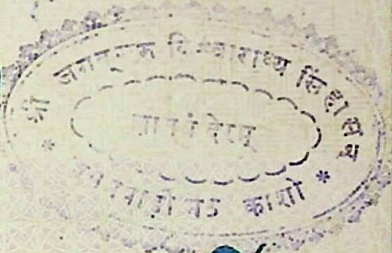 श्री जगद्गुरु विश्वाराध्य सिंहासन
ज्ञानमंदिर
जंगमवाड़ीमठ काशी